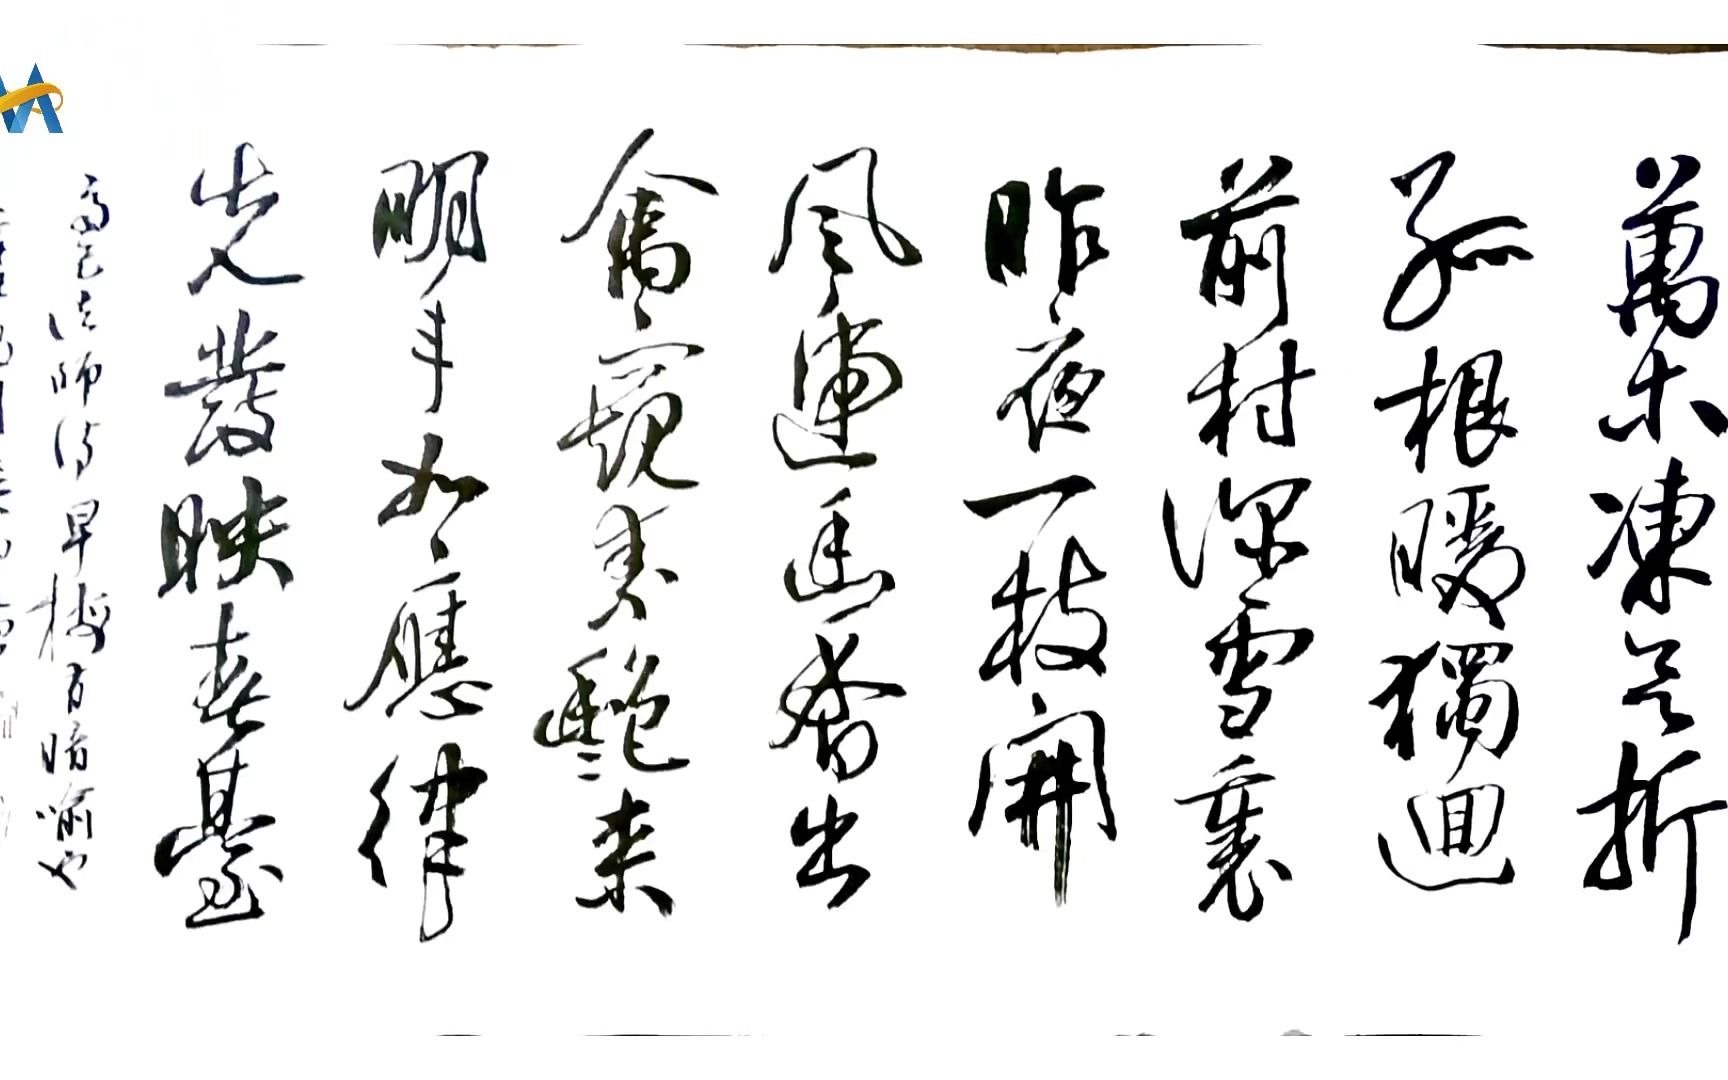 萬木凍欲折
孤根暖獨迴
前村深雪裏
昨夜一枝開
風遞幽香出
禽窺素艷来
明年如應律
先發映春臺
齊己法師詩早梅有暗喻也